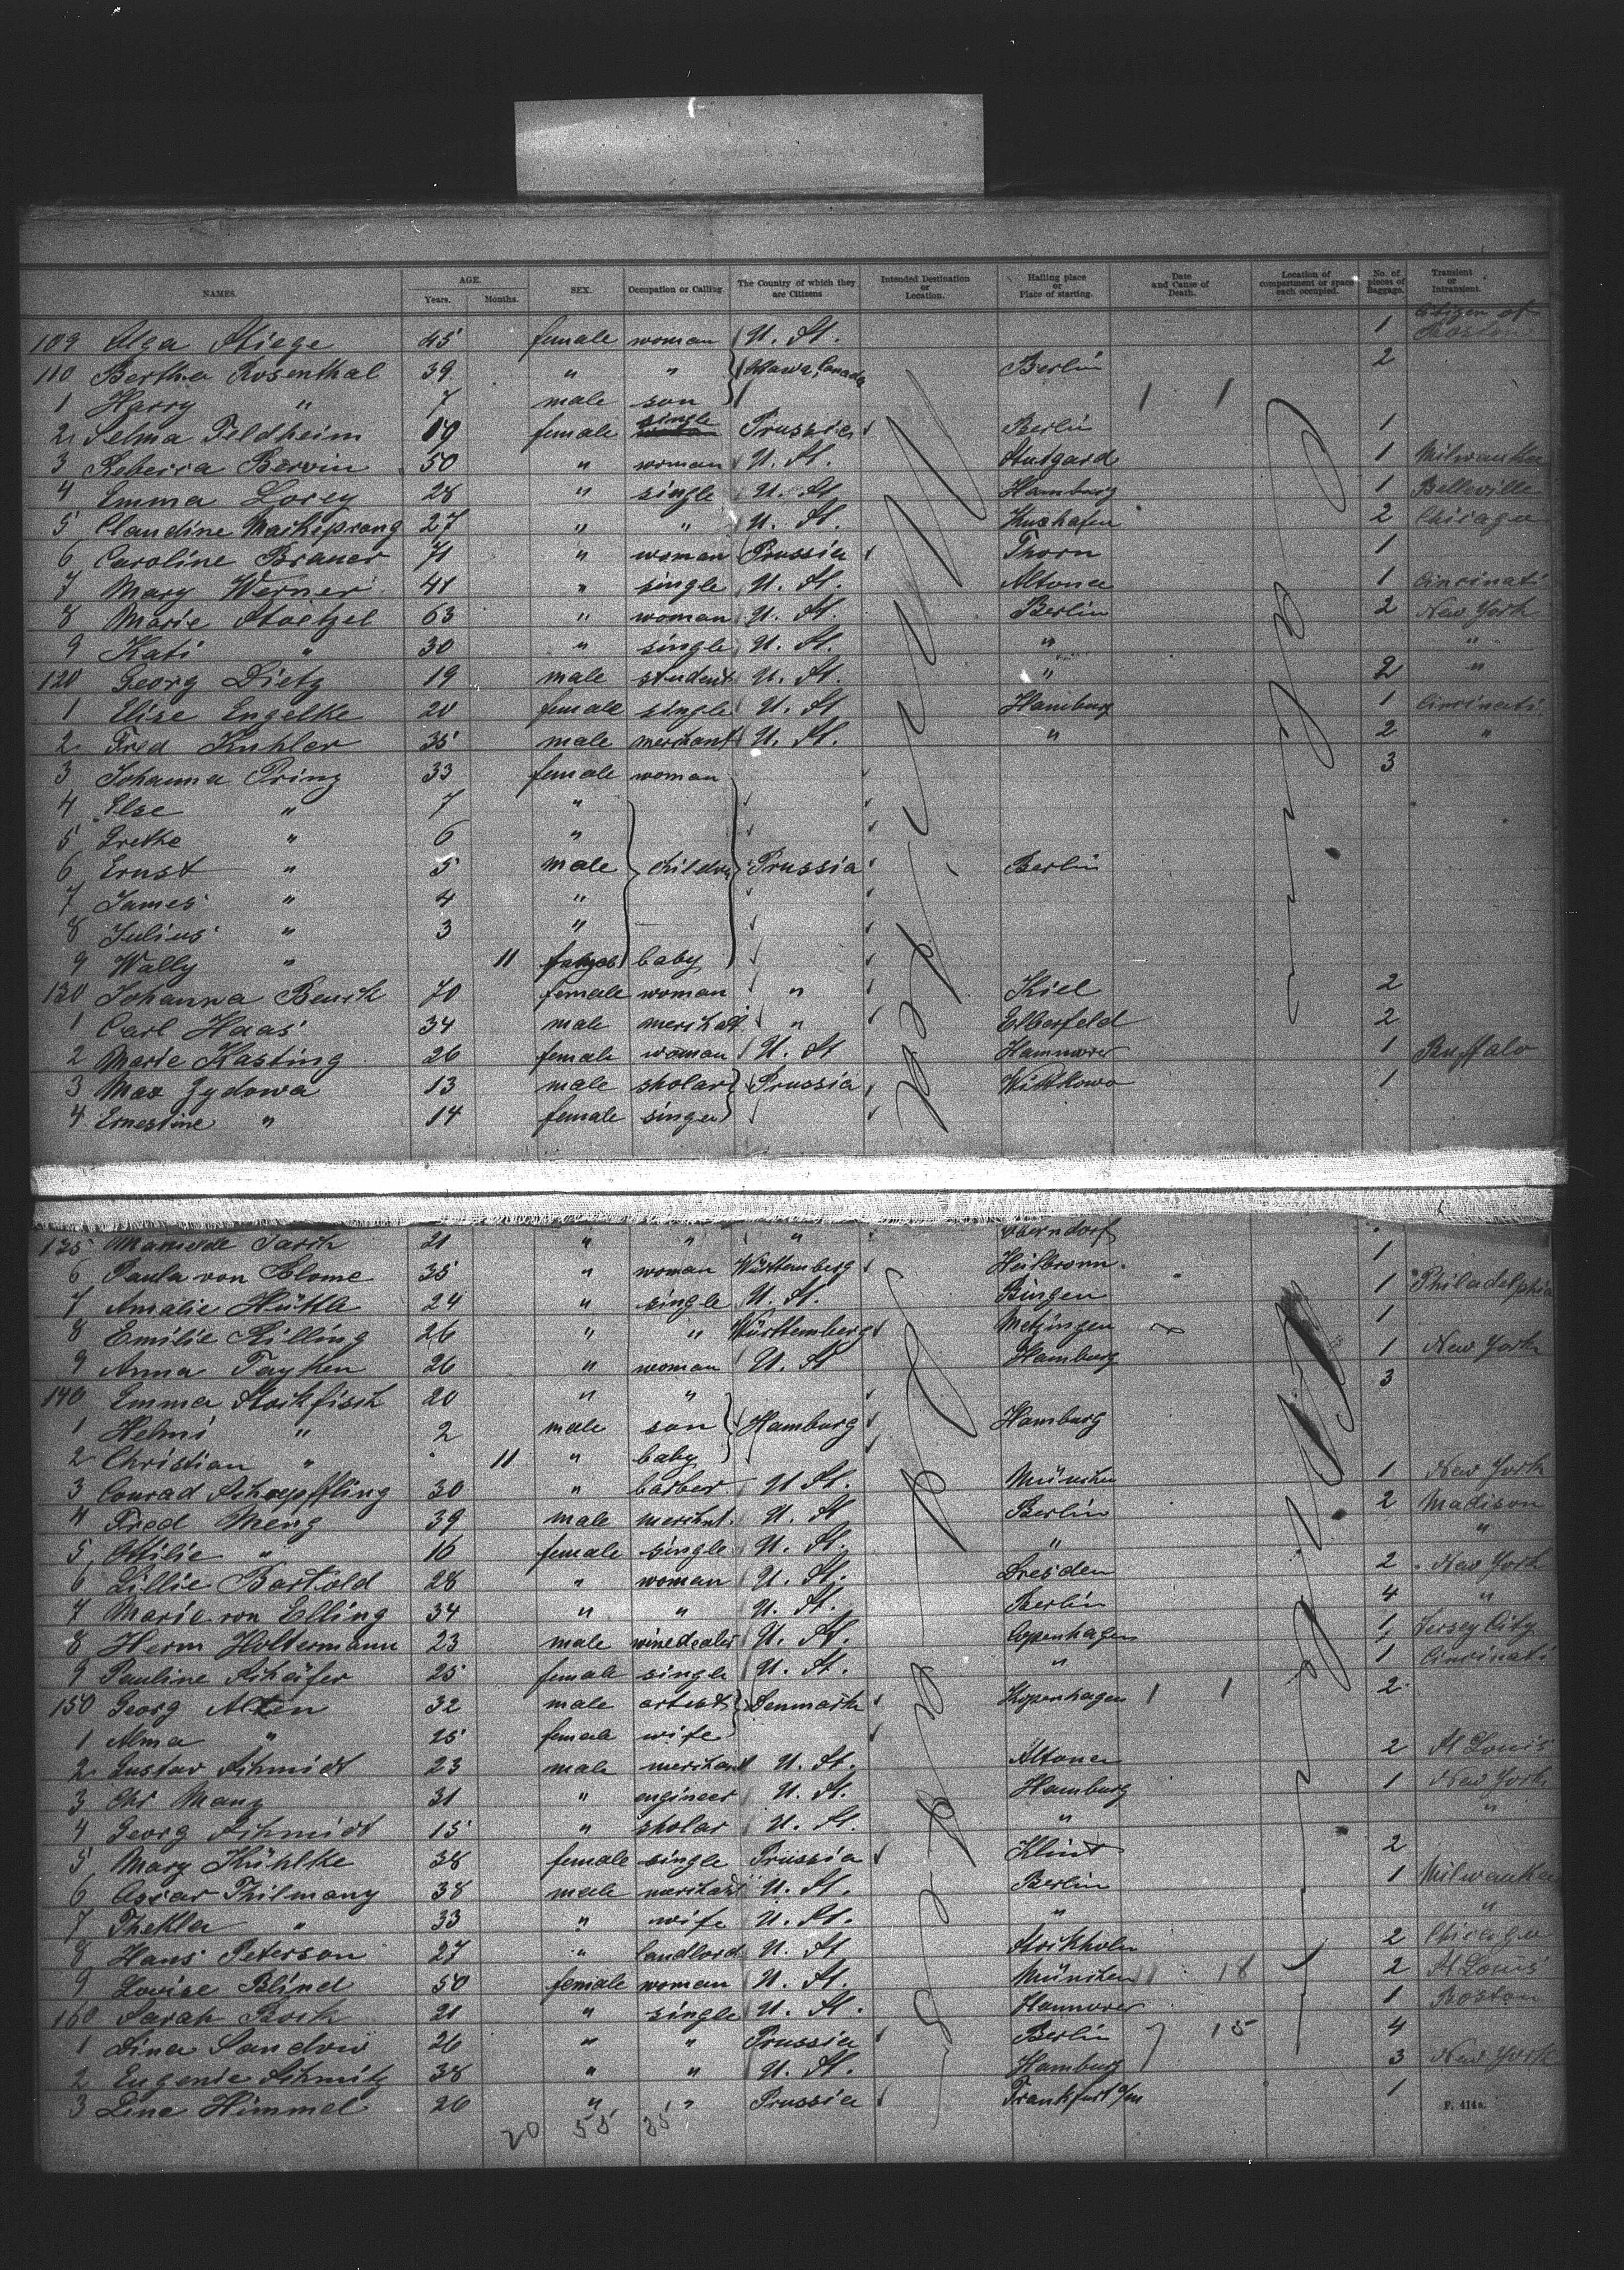 NAMES. AGE. Years. Months. SEX. Occupation or Calling. The Country of which they are Citizens Intended Destination or Location. Hailing place or Place of starting. Date and Cause of Death. Location of compartment or space each occupied. No. of pieces of Baggage. Transient or Intransient.
109 Olga Stiege 45 female woman U. St. 1 Citizen of Boston
110 Bertha Rosenthal 39 " " Ottawa, Canada Berlin 2
1 Harry " 7 male son 1 1
2 Selma Feldheim 19 female single Prussia Berlin 1
3 Rebecca Bervin 50 " woman U. St. Stutgard 1 Milwaukee
4 Emma Lorey 28 " single U. St. Hamburg 1 Belleville
5 Claudine Markeprang 27 " " U. St. Kuxhafen 2 Chicago
6 Caroline Brauer 71 " woman Prussia Thorn 1
7 Mary Werner 41 " single U. St. Altona 1 Cincinati
8 Marie Stoetzel 63 " woman U. St. Berlin 2 New York
9 Kati " 30 " single U. St. " "
120 Georg Dietz 19 male student U. St. " 2 "
1 Elise Engelke 20 female single U. St Hamburg 1 Cincinati
2 Fred Kuhler 35 male merchant U. St. " 2 "
3 Johanna Prinz 33 female woman 3
4 Else " 7 "
5 Grethe " 6 "
6 Ernst " 5 male children Prussia Berlin
7 James " 4 "
8 Julius " 3 "
9 Wally " 11 baby
130 Johanna Beuck 70 female woman " Kiel 2
1 Carl Haas 34 male merchat " Elberfeld 2
2 Marie Kasting 26 female woman U. St Hannover 1 Buffalo
3 Max Zydowa 13 male sholar Prussia Wittkowo 1
4 Ernestine " 14 female singer
135 21 " " " Oberndorf
6 Paula von Blome 35 " woman Württemberg Heilbronn 1
7 Amalie Hüttle 24 " single U. St. Bingen 1 Philadelphia
8 Emilie Rilling 26 " " Württemberg Metzingen 1
9 Anna Tayken 26 " woman U. St Hamburg 1 New York
140 Emma Stockfisch 20 " " 3
1 Helmi " 2 male son Hamburg Hamburg
2 Christian " 11 " baby
3 Conrad Schoepffling 30 " barber U St. München 1 New York
4 Fred Meng 39 male merchnt. U. St Berlin 2 Madison
5 Ottilie " 16 female single U. St. " "
6 Lillie Bartold 28 " woman U. St. Dresden 2 New York
7 Marie von Elling 34 " " U. St. Berlin 4 "
8 Herm Holtermann 23 male winedealer U. St. Copenhagen 1 Jersey City
9 Pauline Schäfer 25 female single U. St. " 1 Cincinati
150 Georg Alten 32 male artist Denmark Kopenhagen 1 1 2
1 Alma " 25 female wife
2 Gustav Schmidt 23 male merchant U. St. Altona 2 St Louis
3 Chr Manz 31 " engineer U. St. Hamburg 1 New York
4 Georg Schmidt 15 " sholar U. St. " "
5 Mary Kühlke 38 female single Prussia Klint 2
6 Oscar Thilmany 38 male merchant U. St. Berlin 1 Milwaukee
7 Thekla " 33 " wife U. St. " "
8 Hans Peterson 27 " landlord U. St Stockholm 2 Chicago
9 Louise Blind 50 female woman U. St. München 18 2 St Louis
160 Sarah Bock 21 " single U. St. Hannover 1 Boston
1 Lina Sandow 26 " " Prussia Berlin 7 15 4
2 Eugenie Schmitz 38 " " U. St. Hamburg 3 New York
3 Line Himmel 26 " " Prussia Frankfurt a/m 1
F. 414a.
20 55 35